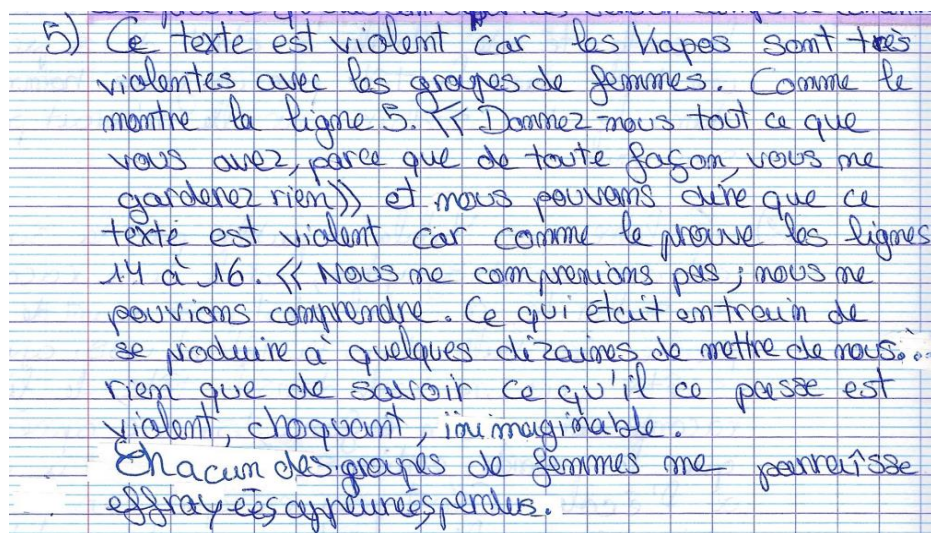 5) Ce texte est violent car les Kapos sont très
violentes avec les groupes de femmes. Comme le
montre la ligne 5. « Donnez-nous tout ce que
vous avez, parce que de toute façon, vous ne
garderez rien» et nous pouvons dire que ce
texte est violent car comme le prouve les lignes
14 à 16. « Nous ne comprenions pas ; nous ne
pouvions comprendre. Ce qui était entrain de
se produire à quelques dizaines de mettre de nous...
rien que de savoir ce qu'il ce passe est
violent, choquant, inimaginable.
Chacun des groupes de femmes me
effrayées appeurées perdus.